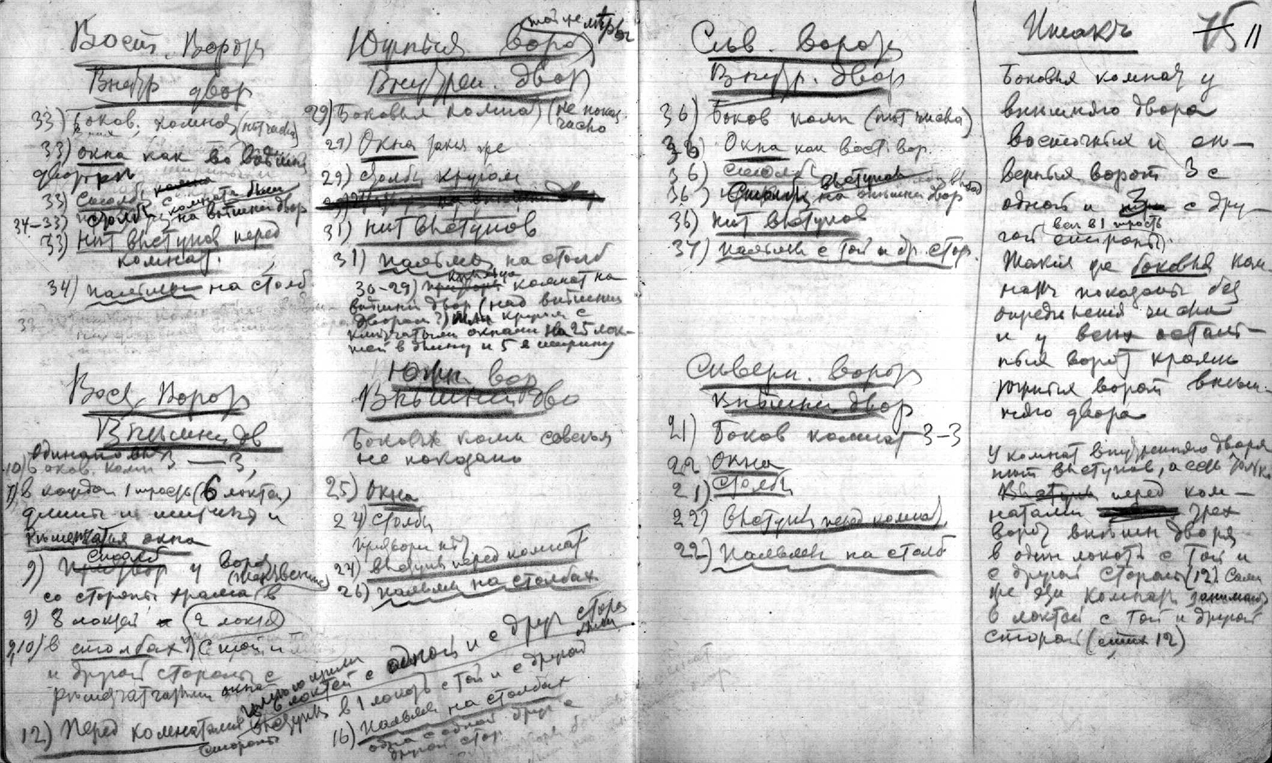 Вост. Ворот
Внутр двор
33) Боков. комнат (нет числа)
33) окна как во внешн
дворѣ
33) Столб
34–33) столб на внѣшнiй двор
33) Нѣт выступов перед
комнат.
34) пальмы на столб
Вост. Ворот
Внѣшнiй дв
одинаковых
10) боков. комн 3 — 3,
7) в каждой 1 трость (6 локтей)
длины и ширины и
рѣшетчатыя окна
столб
9) Притвор у ворот
со стороны храма в
9) 8 локтей и 2 локтя
9,10) в столбах с той и
и другой стороны с
рѣшетчатыми окнами
12) Перед комнатами выступ в 1 локоть с той и с другой
стороны
локтей с одной и с друг стороны
Южныя ворот
той же мѣры
Внутрен. двор
29) Боковыя комнат (не показ.
число
29) Окна такiя же
29) столб кругом
31) нѣт выступов
31) пальмы на столб
30–29) комнат на
внѣшнiй двор (над внѣшним
двором?) кругом с
рѣшетчатыми окнами на 25 лок-
тей в длину и 5 в ширину
Южн. вор
Внѣшнiй дво
Боковыя комн совсѣм
не показано
25) окна
24) столбы
притвор
24) выступ перед комнат
26) пальмы на столбах
16) Пальмы на столбах
одна с одной друг с
другой стор.
Сѣв. ворот
Внутр. двор
36) Боков комн (нѣт числа)
36) Окна как вост. вор.
36) столб
36) на внѣшнiй двор
36) нѣт выступов
37) пальмы с той и др. стор.
Сѣверн. ворот
Внѣшнiй двор
21) Боков комнат 3–3
22 окна
21) столбы
22) выступ перед комнат
22) Пальмы на столб
Итакъ
75 11
Боковыя комнат у
внѣшняго двора
восточныя и сѣ-
верныя ворот 3 с
одной и 3 с дру-
гой стороны.
всѣ в 1 трость
Такiя же боковыя ком-
наты показаны без
опредѣленiя числа
и у всѣх осталь-
ныя ворот кромѣ
южныя ворот внѣш-
няго двора
у комнат внутренняго двора
нѣт выступов, а есть только
выступ перед ком-
натами трех
ворот внѣшн двора
в один локоть с той и
с другой стороны (12) Сами
же эти комнаты занимают
6 локтей с той и другой
стороны (стих 12)